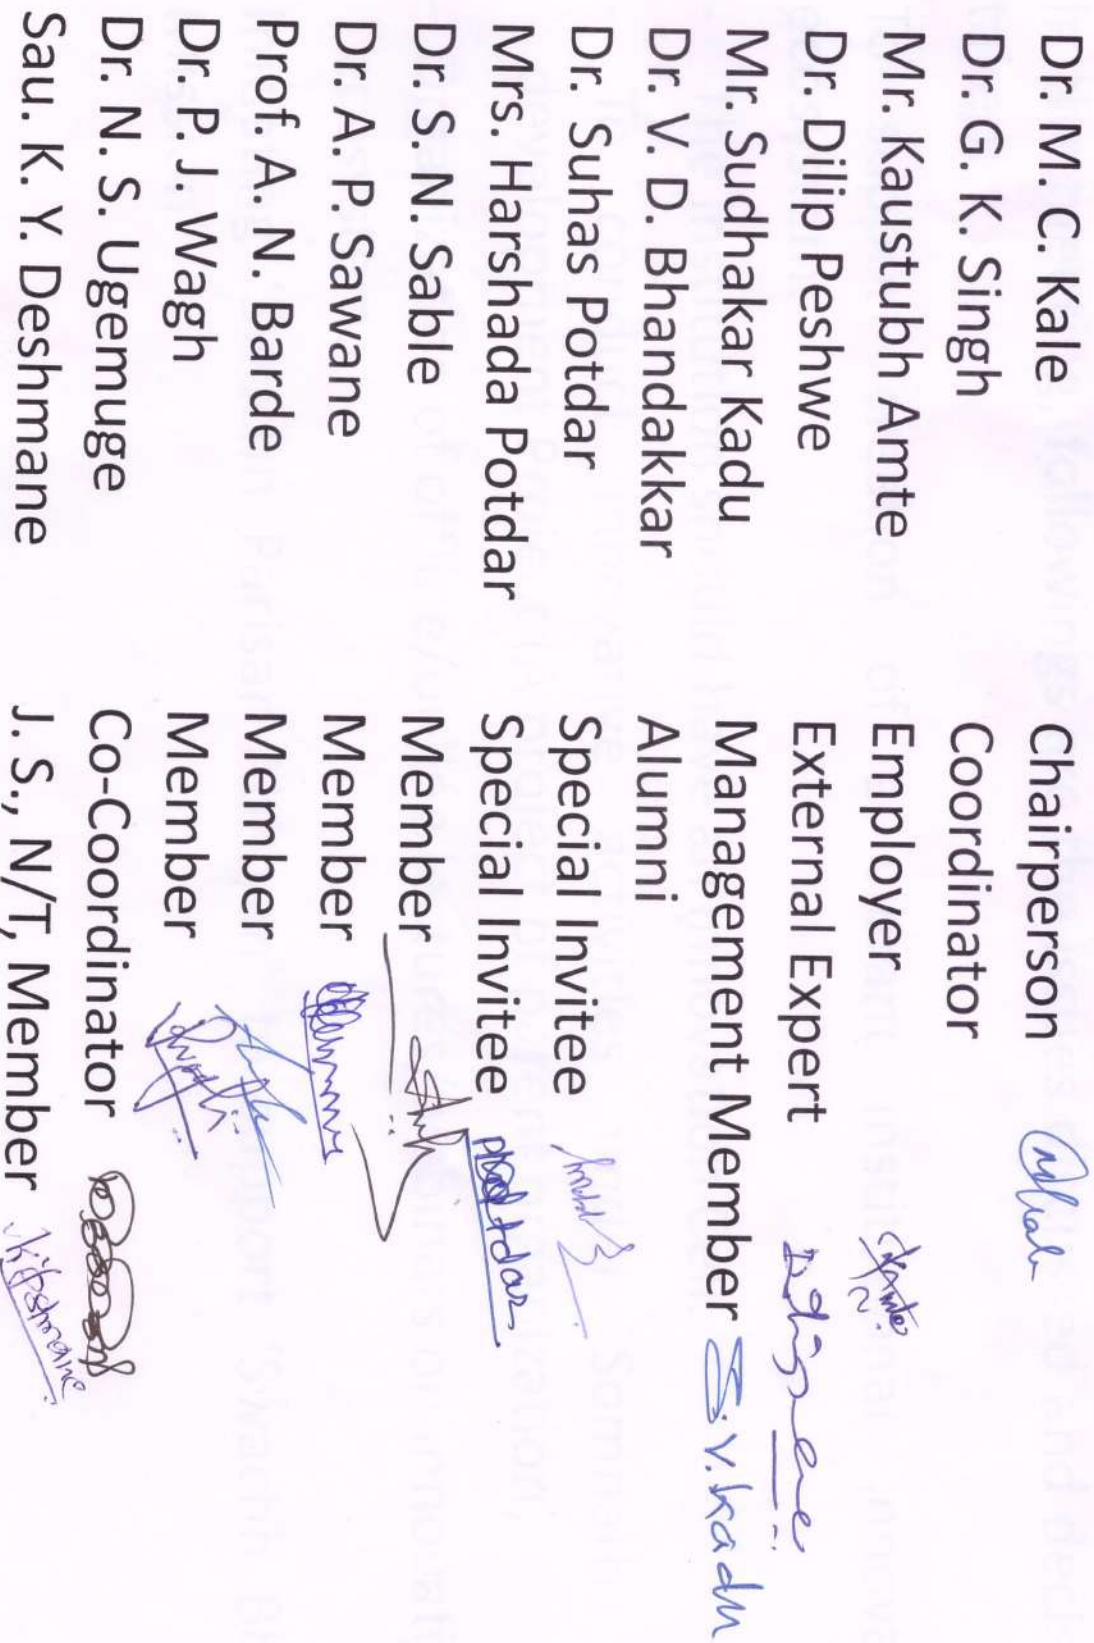 Dr. M. C. Kale Chairperson
Dr. G. K. Singh Coordinator
Mr. Kaustubh Amte Employer
Dr. Dilip Peshwe External Expert
Mr. Sudhakar Kadu Management Member S.V. Kadu
Dr. V. D. Bhandakkar Alumni
Dr. Suhas Potdar Special Invitee
Mrs. Harshada Potdar Special Invitee
Dr. S. N. Sable Member
Dr. A. P. Sawane Member
Prof. A. N. Barde Member
Dr. P. J. Wagh Member
Dr. N. S. Ugemuge Co-Coordinator
Sau. K. Y. Deshmane J. S., N/T, Member